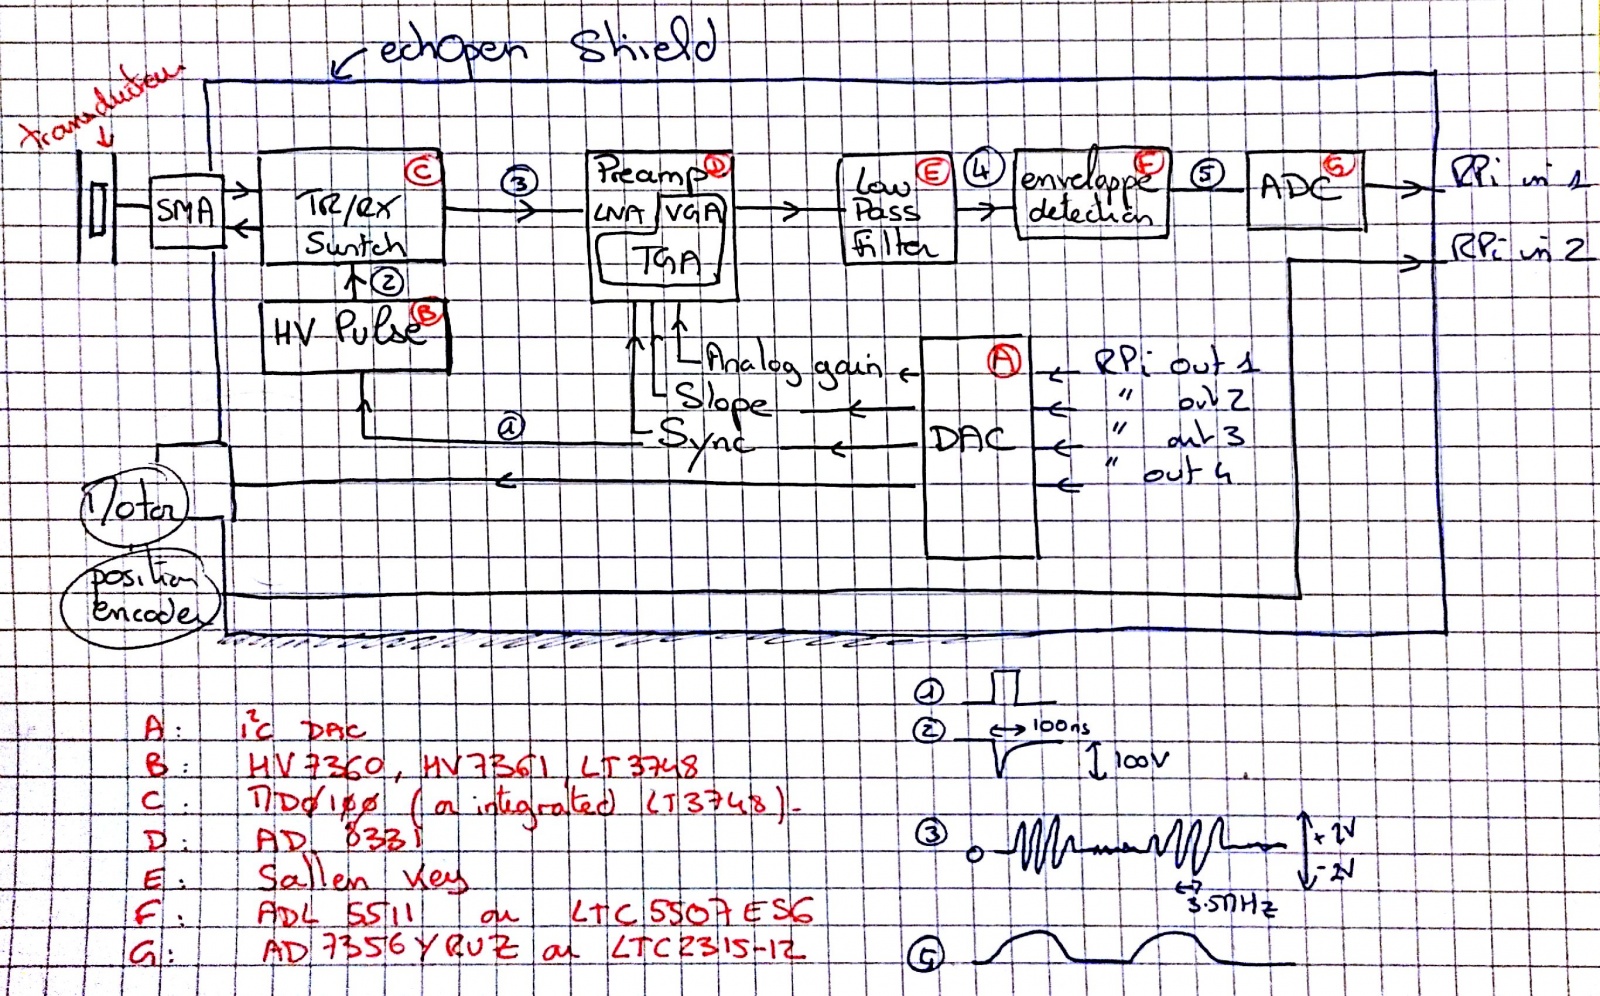 echOpen Shield
transducteur
SMA
C
TR/RX
Switch
3
Preamp
D
LNA VGA
TGA
Low
Pass
Filter
E
4
enveloppe
detection
F
5
ADC
G
RPi in 1
RPi in 2
2
HV Pulse
B
Analog gain
Slope
Sync
1
A
DAC
RPi out 1
" out 2
" out 3
" out 4
Motor
position
encoder
A: I²C DAC
B: HV7360, HV7361, LT3748
C: MD0100 (or integrated LT3748).
D: AD 8331
E: Sallen Key
F: ADL 5511 ou LTC5507ES6
G: AD7356YRUZ ou LTC2315-12
1
2
100ns
100V
3
0
+2V
-2V
3.5MHz
5